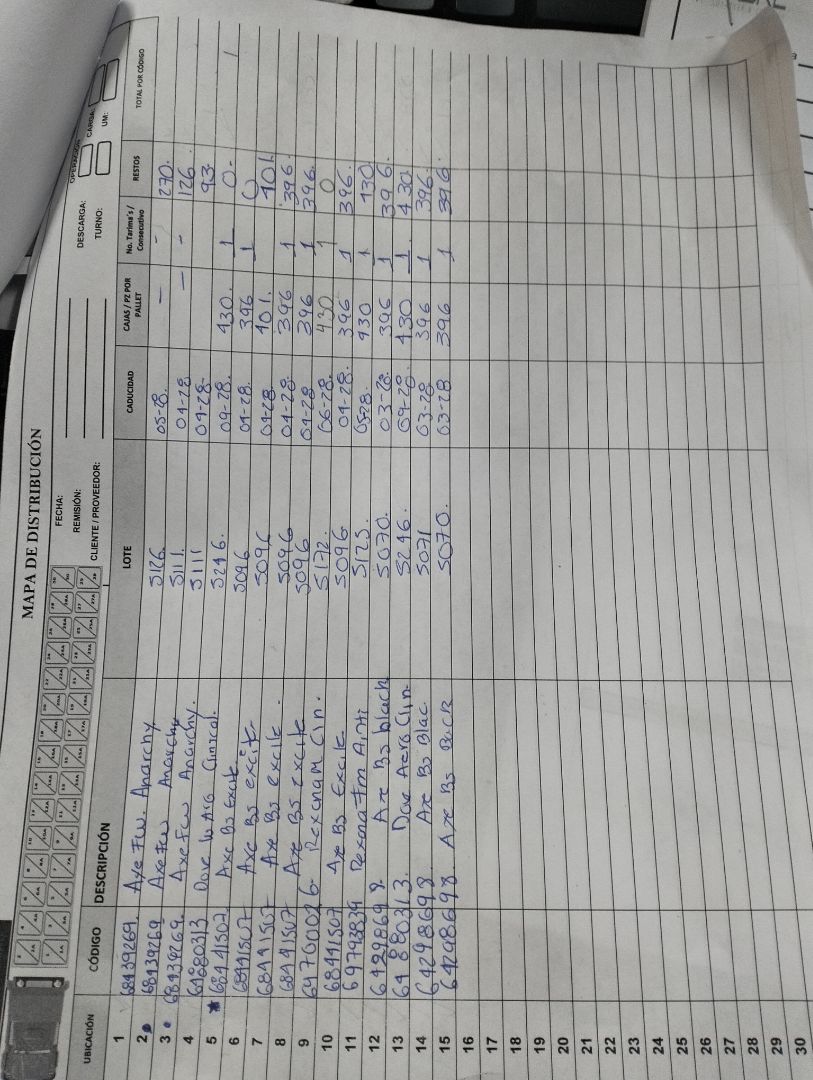 MAPA DE DISTRIBUCIÓN
FECHA:
REMISIÓN:
CLIENTE / PROVEEDOR:
OPERACIÓN
DESCARGA:
CARGA:
TURNO:
UM:
UBICACIÓN CÓDIGO DESCRIPCIÓN LOTE CADUCIDAD CAJAS / PZ POR PALLET No. Tarima's / Consecutivo RESTOS TOTAL POR CÓDIGO
1 68439269. Axe Fw. Anarchy 5126. 05-28. — - 270.
2 68439269 Axe Fw Anarchy 5111. 04-28 — - 126.
3 68439269. Axe Fw Anarchy. 5111 04-28. 93.
4 64880313 Dove W Aro Clinical. 5246. 09-28. 430. 1 0.
5 68441507. Axe Bs Excite. 5096 04-28. 396 1 0
6 68441507 Axe Bs excite 5096 04-28 401. 401.
7 68441507 Axe Bs excite. 5096 04-28. 396 1 396.
8 68441507 Axe Bs excite 5096 04-28 396 1 396.
9 64760026. Rexona M Cin. 5172. 06-28. 430 1 0
10 68441507 Axe Bs Excite 5096 04-28. 396 1 396.
11 69793839 Rexona Fm Anti 5125. 05-28. 430 1 430
12 64298698. Axe Bs black 5070. 03-28. 396 1 396.
13 64880313. Dove Aero Clin. 5246. 09-28. 430 1 430.
14 64298698. Axe Bs Blac 5071 03-28 396 1 396.
15 64298698. Axe Bs BLCK 5070. 03-28. 396 1 396.
16
17
18
19
20
21
22
23
24
25
26
27
28
29
30